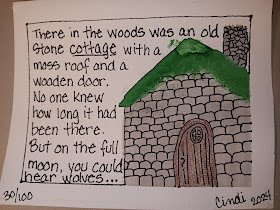 There in the woods was an old
stone cottage with a
moss roof and a
wooden door.
No one knew
how long it had
been there.
But on the full
moon, you could
hear wolves...
30/100
Cindi 2024